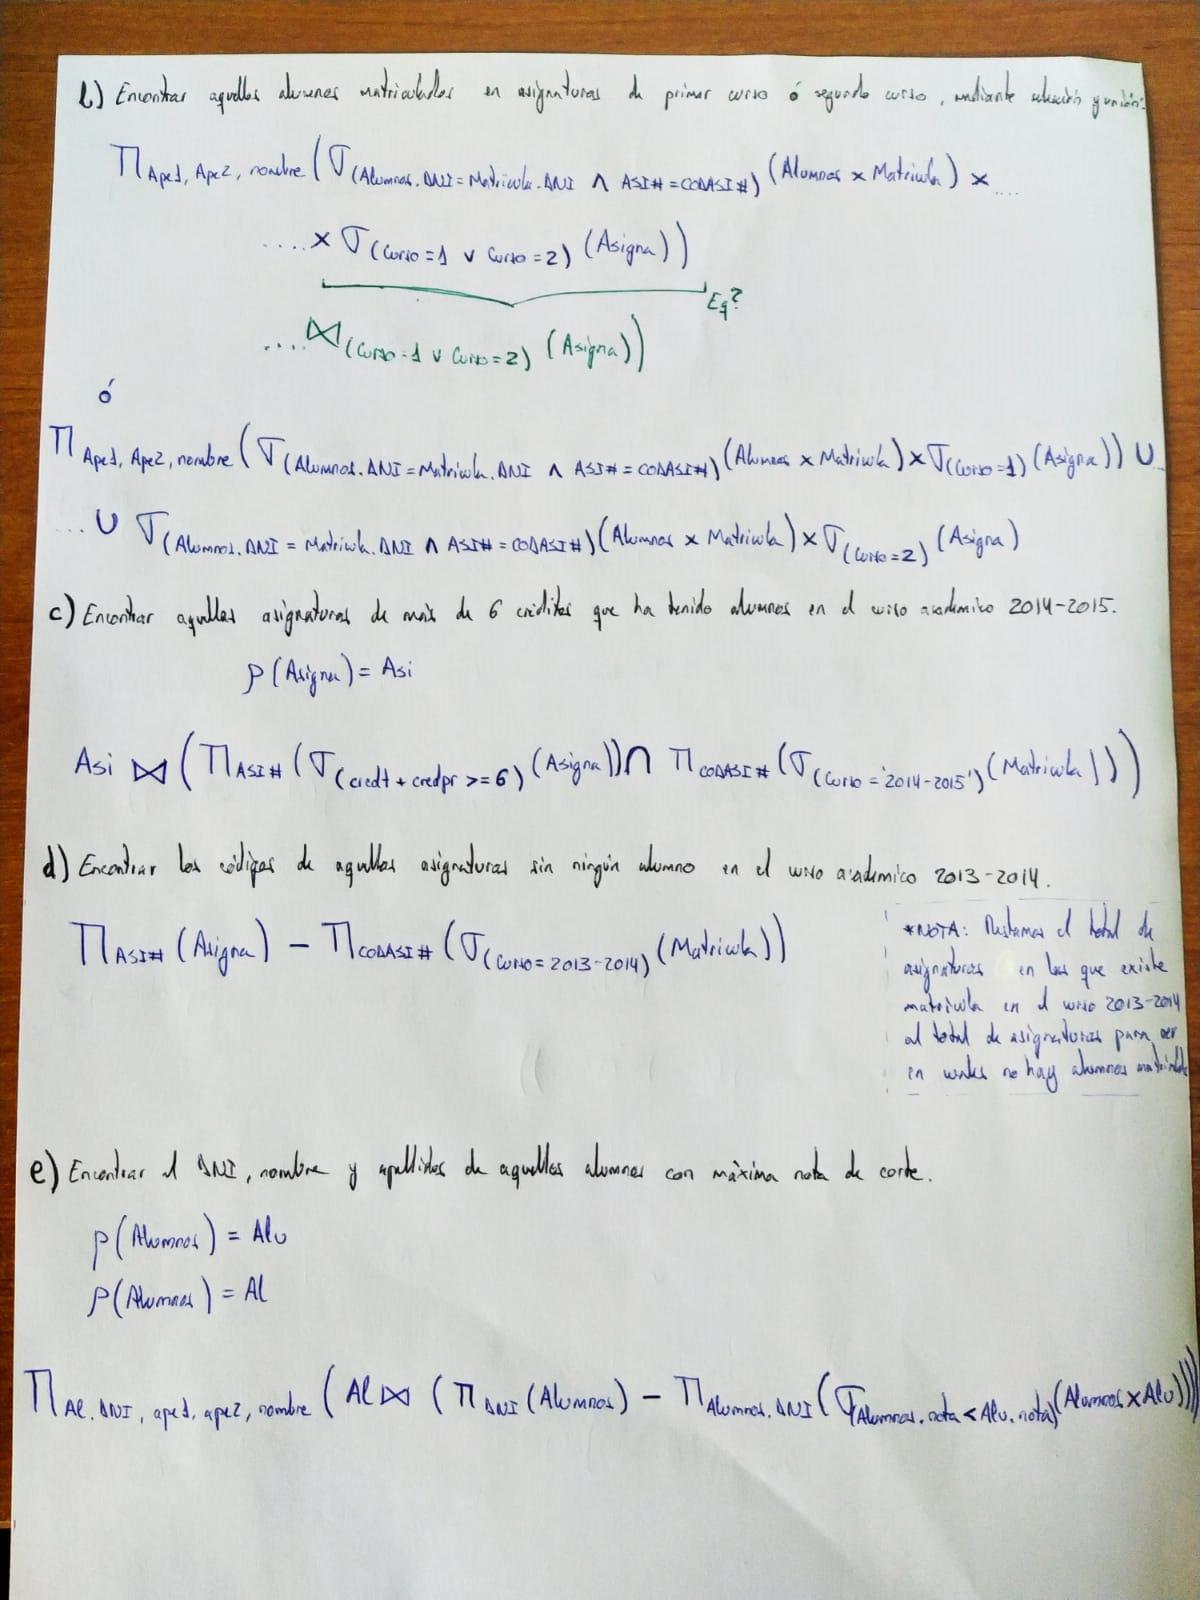 b) Encontrar aquellos alumnos matriculados en asignaturas de primer curso ó segundo curso, mediante selección y unión:
Π Ape1, Ape2, nombre (σ (Alumnos.DNI = Matricula.DNI ∧ ASI# = CODASI#) (Alumnos x Matricula) x ....
.... x σ (curso = 1 ∨ curso = 2) (Asigna))
Eq?
.... ⋈ (curso = 1 ∨ curso = 2) (Asigna))
ó
Π Ape1, Ape2, nombre (σ (Alumnos.DNI = Matricula.DNI ∧ ASI# = CODASI#) (Alumnos x Matricula) x σ (curso = 1) (Asigna)) ∪ ...
... ∪ σ (Alumnos.DNI = Matricula.DNI ∧ ASI# = CODASI#) (Alumnos x Matricula) x σ (curso = 2) (Asigna)
c) Encontrar aquellas asignaturas de más de 6 créditos que ha tenido alumnos en el curso academico 2014-2015.
ρ (Asigna) = Asi
Asi ⋈ (Π ASI# (σ (credt + credpr >= 6) (Asigna)) ∩ Π CODASI# (σ (curso = '2014-2015') (Matricula)))
d) Encontrar los códigos de aquellas asignaturas sin ningún alumno en el curso academico 2013-2014.
Π ASI# (Asigna) - Π CODASI# (σ (curso = 2013-2014) (Matricula))
*NOTA: Restamos el total de
asignaturas en las que existe
matricula en el curso 2013-2014
al total de asignaturas para ver
en cuales no hay alumnos
e) Encontrar el DNI, nombre y apellidos de aquellos alumnos con máxima nota de corte.
ρ (Alumnos) = Alu
ρ (Alumnos) = Al
Π Al.DNI, ape1, ape2, nombre (Al ⋈ (Π DNI (Alumnos) - Π Alumnos.DNI (σ (Alumnos.nota < Alu.nota) (Alumnos x Alu))))